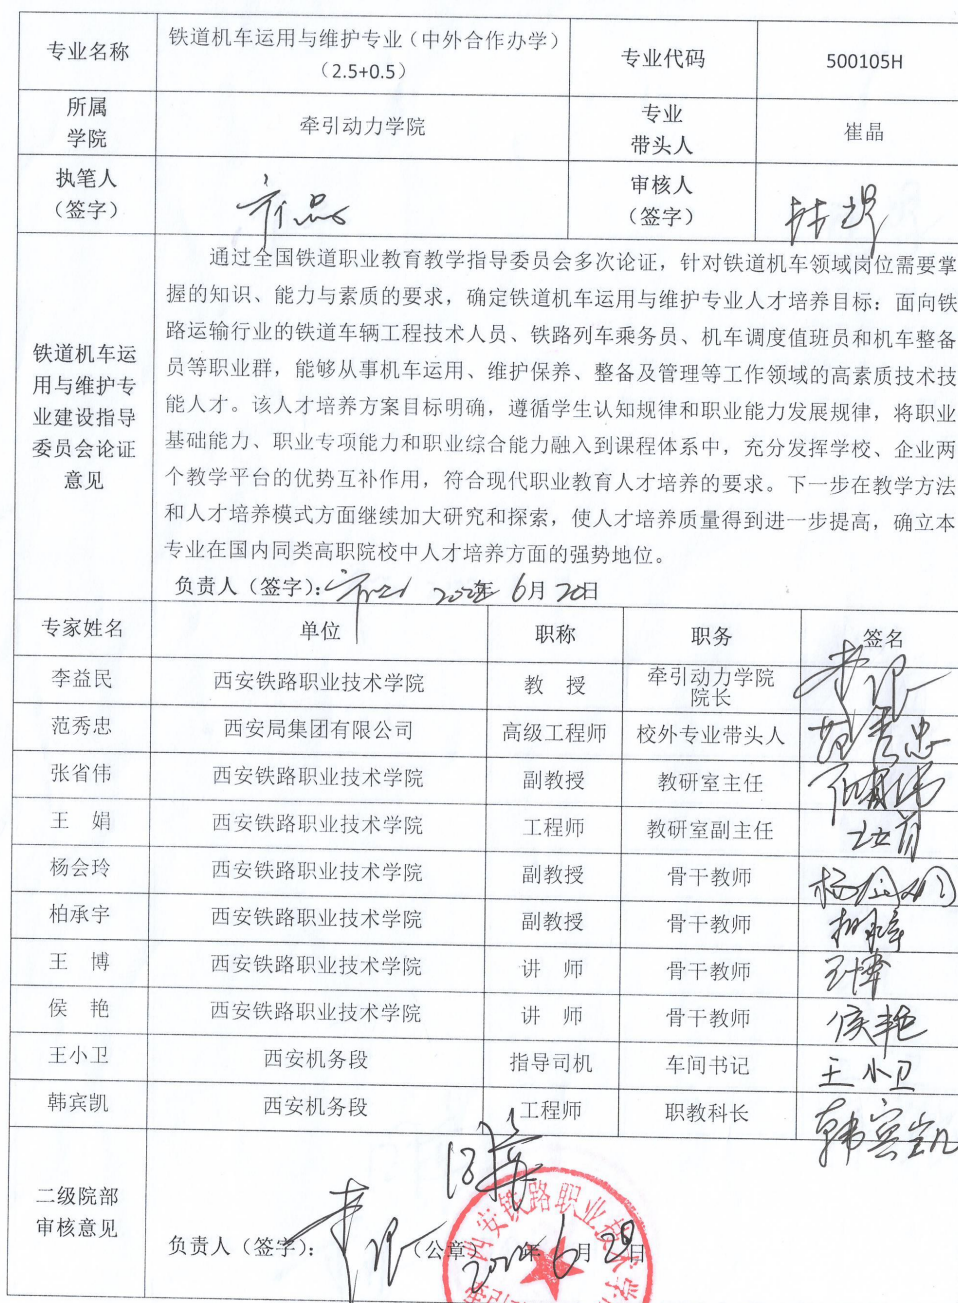 专业名称
铁道机车运用与维护专业（中外合作办学）
（2.5+0.5）
专业代码
500105H
所属
学院
牵引动力学院
专业
带头人
崔晶
执笔人
（签字）
审核人
（签字）
铁道机车运
用与维护专
业建设指导
委员会论证
意见
通过全国铁道职业教育教学指导委员会多次论证，针对铁道机车领域岗位需要掌
握的知识、能力与素质的要求，确定铁道机车运用与维护专业人才培养目标：面向铁
路运输行业的铁道车辆工程技术人员、铁路列车乘务员、机车调度值班员和机车整备
员等职业群，能够从事机车运用、维护保养、整备及管理等工作领域的高素质技术技
能人才。该人才培养方案目标明确，遵循学生认知规律和职业能力发展规律，将职业
基础能力、职业专项能力和职业综合能力融入到课程体系中，充分发挥学校、企业两
个教学平台的优势互补作用，符合现代职业教育人才培养的要求。下一步在教学方法
和人才培养模式方面继续加大研究和探索，使人才培养质量得到进一步提高，确立本
专业在国内同类高职院校中人才培养方面的强势地位。
负责人（签字）： 2022年 6月 20日
专家姓名 单位 职称 职务 签名
李益民 西安铁路职业技术学院 教 授 牵引动力学院
院长
范秀忠 西安局集团有限公司 高级工程师 校外专业带头人 范秀忠
张省伟 西安铁路职业技术学院 副教授 教研室主任 张省伟
王 娟 西安铁路职业技术学院 工程师 教研室副主任
杨会玲 西安铁路职业技术学院 副教授 骨干教师 杨会玲
柏承宇 西安铁路职业技术学院 副教授 骨干教师 柏承宇
王 博 西安铁路职业技术学院 讲 师 骨干教师 王博
侯 艳 西安铁路职业技术学院 讲 师 骨干教师 侯艳
王小卫 西安机务段 指导司机 车间书记 王小卫
韩宾凯 西安机务段 工程师 职教科长 韩宾凯
二级院部
审核意见
西安铁路职业技术学
牵引
负责人（签字）： （公章） 2022年 6月 20日